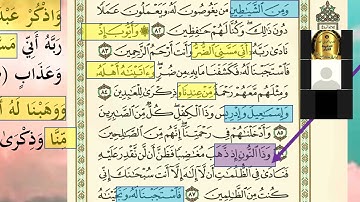 وَمِنَ ٱلشَّيَٰطِينِ مَن يَغُوصُونَ لَهُۥ وَيَعْمَلُونَ عَمَلًا
دُونَ ذَٰلِكَ ۖ وَكُنَّا لَهُمْ حَٰفِظِينَ ٨٢ ۞ وَأَيُّوبَ إِذْ
نَادَىٰ رَبَّهُۥٓ أَنِّى مَسَّنِىَ ٱلضُّرُّ وَأَنتَ أَرْحَمُ ٱلرَّٰحِمِينَ ٨٣
فَٱسْتَجَبْنَا لَهُۥ فَكَشَفْنَا مَا بِهِۦ مِن ضُرٍّ ۖ وَءَاتَيْنَٰهُ أَهْلَهُۥ
وَمِثْلَهُم مَّعَهُمْ رَحْمَةً مِّنْ عِندِنَا وَذِكْرَىٰ لِلْعَٰبِدِينَ ٨٤
وَإِسْمَٰعِيلَ وَإِدْرِيسَ وَذَا ٱلْكِفْلِ ۖ كُلٌّ مِّنَ ٱلصَّٰبِرِينَ ٨٥
وَأَدْخَلْنَٰهُمْ فِى رَحْمَتِنَآ ۖ إِنَّهُم مِّنَ ٱلصَّٰلِحِينَ ٨٦
وَذَا ٱلنُّونِ إِذ ذَّهَبَ مُغَٰضِبًا فَظَنَّ أَن لَّن نَّقْدِرَ عَلَيْهِ
فَنَادَىٰ فِى ٱلظُّلُمَٰتِ أَن لَّآ إِلَٰهَ إِلَّآ أَنتَ سُبْحَٰنَكَ إِنِّى
كُنتُ مِنَ ٱلظَّٰلِمِينَ ٨٧ فَٱسْتَجَبْنَا لَهُۥ
وَٱذْكُرْ عَبْدَ
رَبَّهُۥٓ أَنِّى مَسَّنِىَ
وَعَذَابٍ
وَوَهَبْنَا لَهُۥٓ
مِّنَّا وَذِكْرَىٰ